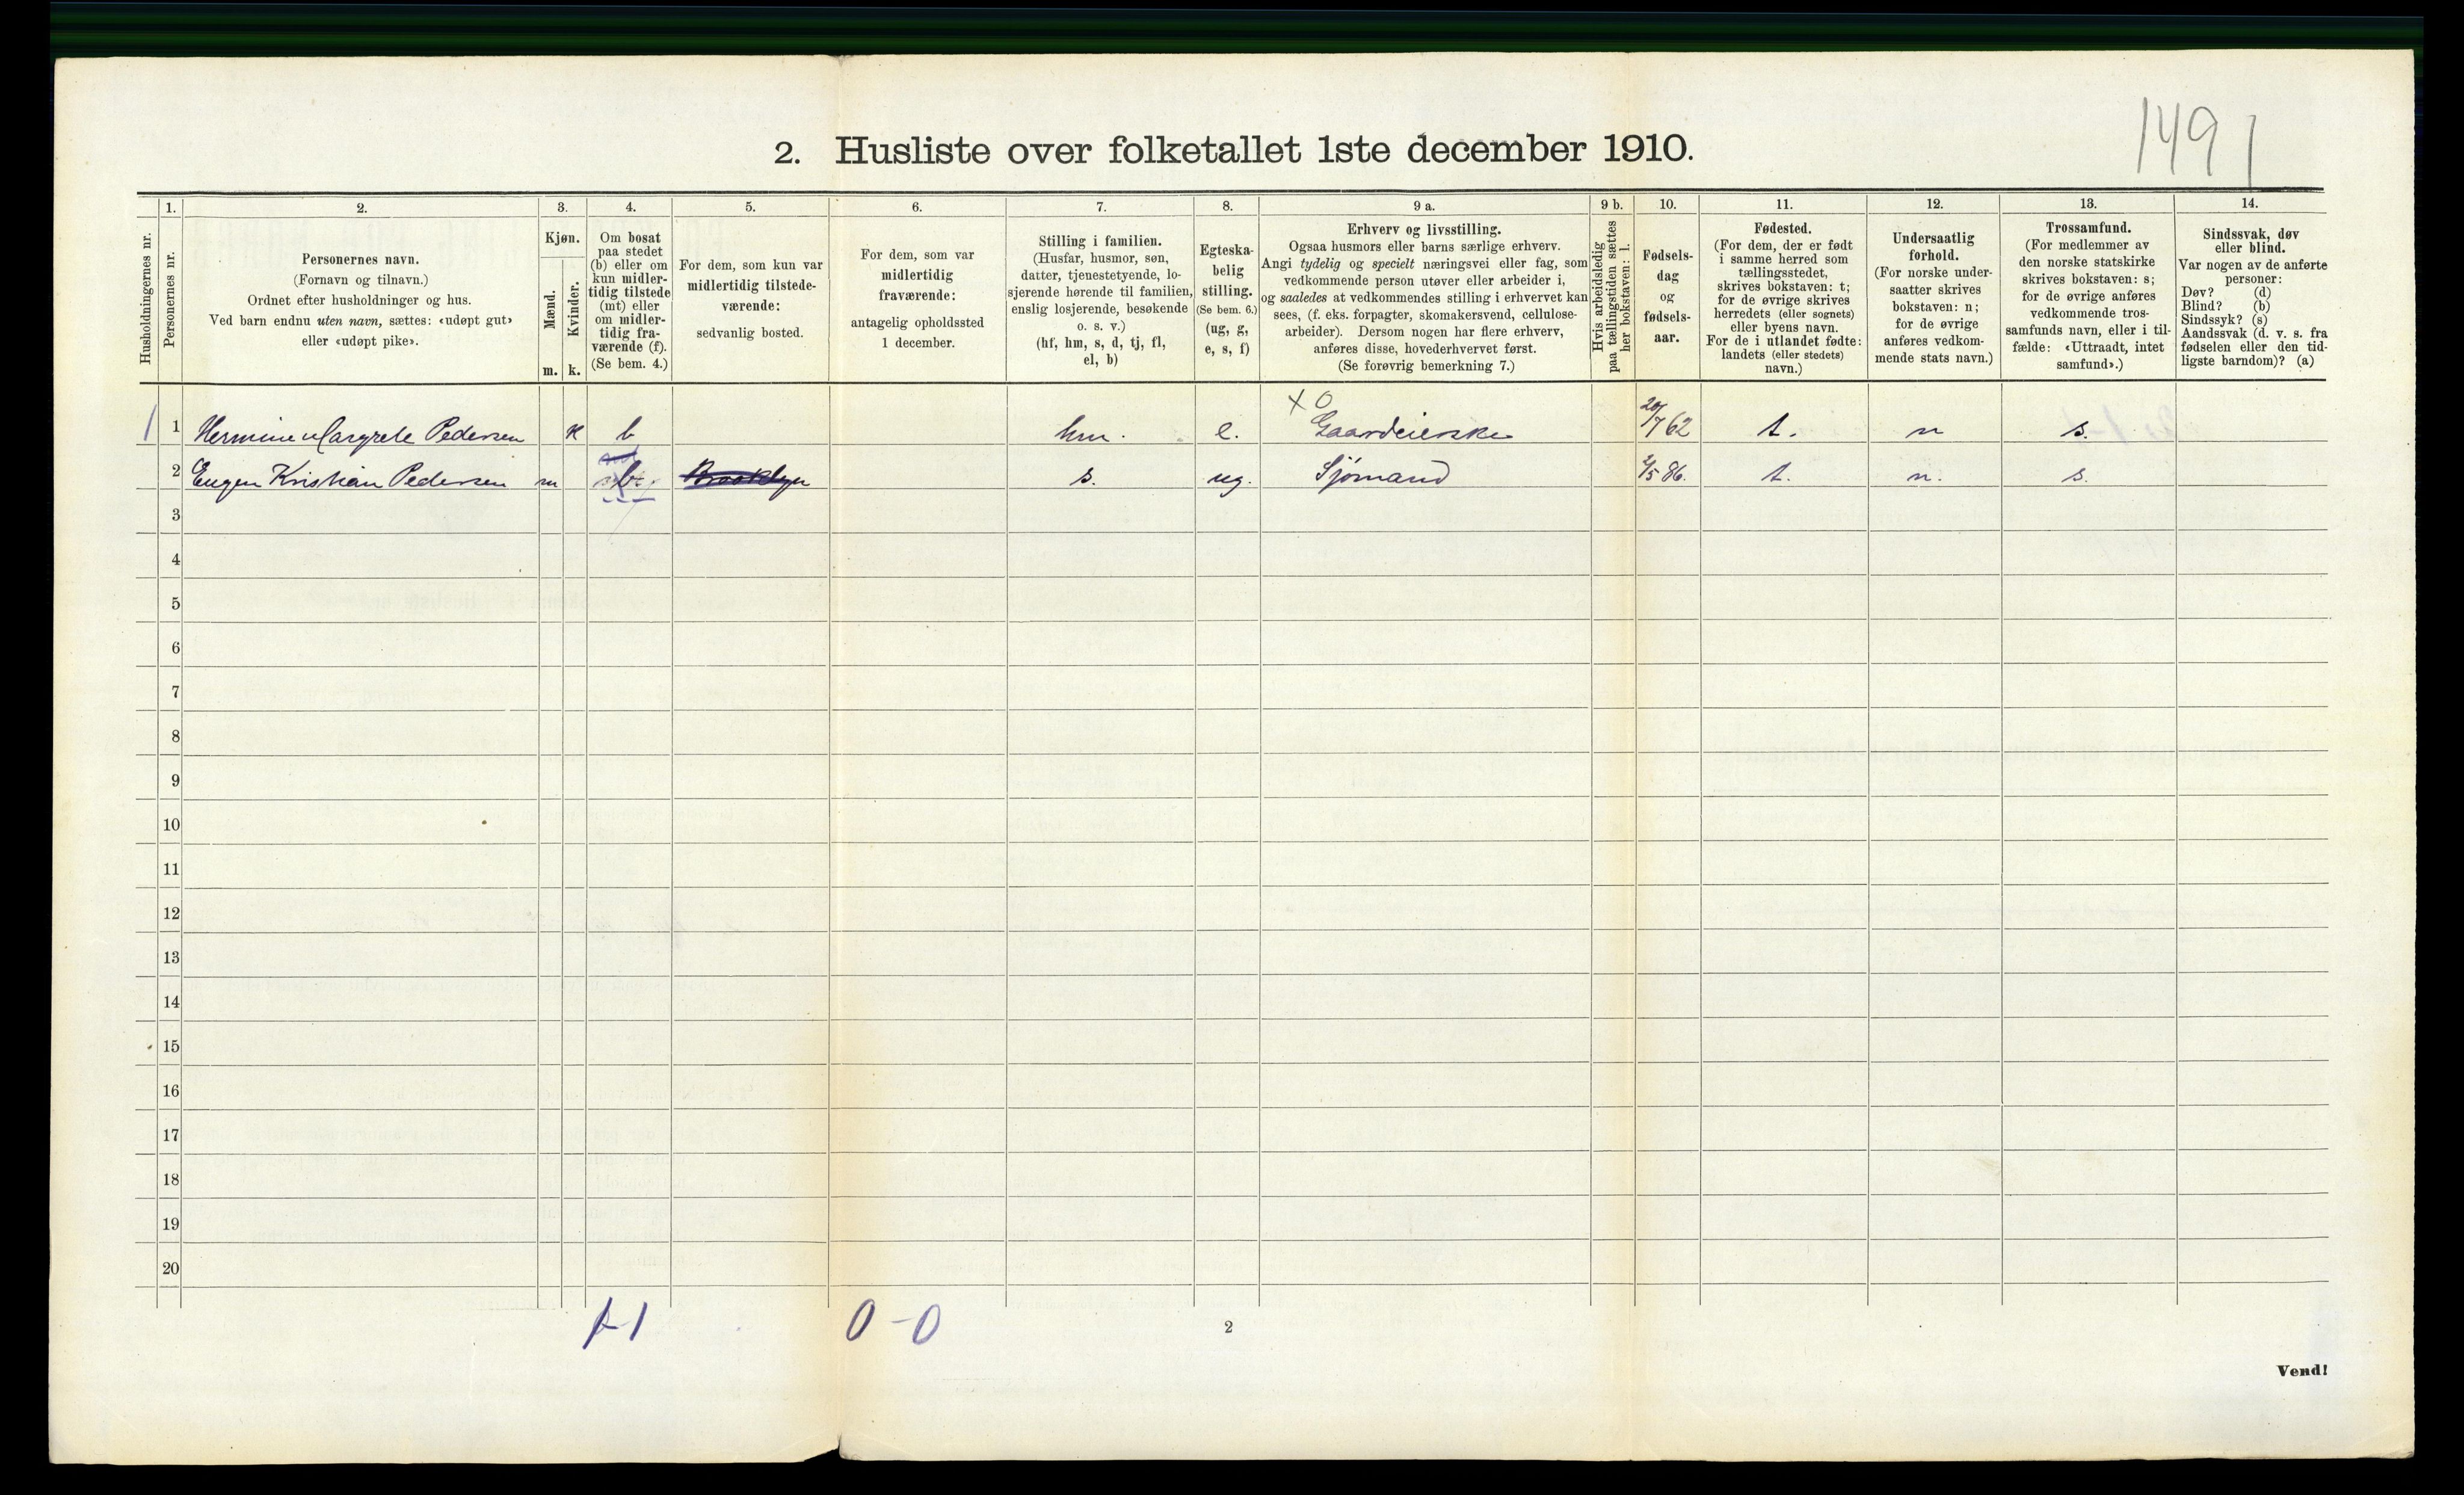 1491
2. Husliste over folketallet 1ste december 1910.
Husholdningernes nr.
1.
Personernes nr.
2.
Personernes navn.
(Fornavn og tilnavn.)
Ordnet efter husholdninger og hus.
Ved barn endnu uten navn, sættes: «udøpt gut»
eller «udøpt pike».
3.
Kjøn.
Mænd.
Kvinder.
m. k.
4.
Om bosat
paa stedet
(b) eller om
kun midler-
tidig tilstede
(mt) eller
om midler-
tidig fra-
værende (f).
(Se bem. 4.)
5.
For dem, som kun var
midlertidig tilstede-
værende:
sedvanlig bosted.
6.
For dem, som var
midlertidig
fraværende:
antagelig opholdssted
1 december.
7.
Stilling i familien.
(Husfar, husmor, søn,
datter, tjenestetyende, lo-
sjerende hørende til familien,
enslig losjerende, besøkende
o. s. v.)
(hf, hm, s, d, tj, fl,
el, b)
8.
Egteska-
belig
stilling.
(Se bem. 6.)
(ug, g,
e, s, f)
9 a.
Erhverv og livsstilling.
Ogsaa husmors eller barns særlige erhverv.
Angi tydelig og specielt næringsvei eller fag, som
vedkommende person utøver eller arbeider i,
og saaledes at vedkommendes stilling i erhvervet kan
sees, (f. eks. forpagter, skomakersvend, cellulose-
arbeider). Dersom nogen har flere erhverv,
anføres disse, hovederhvervet først.
(Se forøvrig bemerkning 7.)
9 b.
Hvis arbeidsledig
paa tællingstiden sættes
her bokstaven: l.
10.
Fødsels-
dag
og
fødsels-
aar.
11.
Fødested.
(For dem, der er født
i samme herred som
tællingsstedet,
skrives bokstaven: t;
for de øvrige skrives
herredets (eller sognets)
eller byens navn.
For de i utlandet fødte:
landets (eller stedets)
navn.)
12.
Undersaatlig
forhold.
(For norske under-
saatter skrives
bokstaven: n;
for de øvrige
anføres vedkom-
mende stats navn.)
13.
Trossamfund.
(For medlemmer av
den norske statskirke
skrives bokstaven: s;
for de øvrige anføres
vedkommende tros-
samfunds navn, eller i til-
fælde: «Uttraadt, intet
samfund».)
14.
Sindssvak, døv
eller blind.
Var nogen av de anførte
personer:
Døv? (d)
Blind? (b)
Sindssyk? (s)
Aandssvak (d. v. s. fra
fødselen eller den tid-
ligste barndom)? (a)
X 0
1 1 Hermine Margrete Pedersen k b hm. e. Gaardeierske 20/7 62 t. n s.
2 Eugen Kristian Pedersen m b Brooklyn s. ug. Sjømand 2/5 86. t. n. s.
3
4
5
6
7
8
9
10
11
12
13
14
15
16
17
18
19
20
0-0
2
Vend!